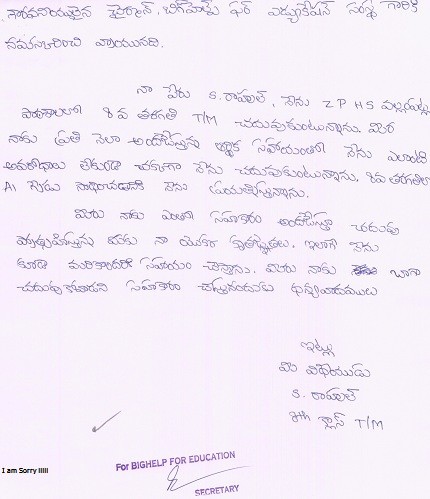 గౌరవనీయులైన చైర్మన్, బిగ్‌హెల్ప్ ఫర్ ఎడ్యుకేషన్ సంస్థ గారికి
నమస్కరించి వ్రాయునది.
నా పేరు S. రాహుల్, నేను Z P H S
పాఠశాలలో 8 వ తరగతి T/M చదువుకుంటున్నాను. మీరు
నాకు ప్రతి నెలా అందిస్తున్న ఆర్థిక సహాయంతో నేను ఎలాంటి
అవరోధాలు లేకుండా చక్కగా నేను చదువుకుంటున్నాను. 8వ తరగతిలో
A1 గ్రేడు సాధించడానికి నేను ప్రయత్నిస్తున్నాను.
మీరు నాకు ఎంతో సహకారం అందిస్తూ చదువు
నా యొక్క కృతజ్ఞతలు. ఇలాగే నేను
కూడా మరికొందరికి సహాయం చేస్తాను. మీరు నాకు బాగా
చదువుకోవడానికి సహకారం ధన్యవాదములు
ఇట్లు
మీ విధేయుడు
S. రాహుల్
8th క్లాస్ T/M
For BIGHELP FOR EDUCATION
I am Sorry lllll
SECRETARY